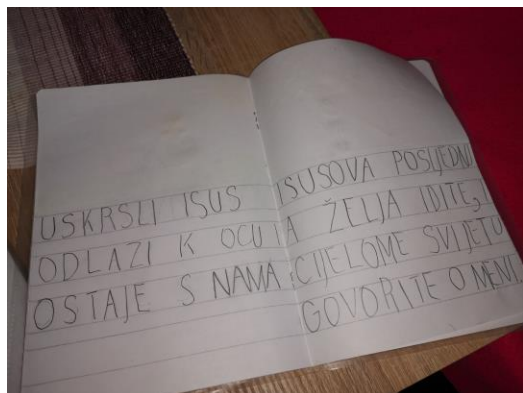 USKRSLI ISUS
ODLAZI K OCU I
OSTAJE S NAMA.
ISUSOVA POSLJEDNJ
A ŽELJA IDITE, I
CIJELOME SVIJETU
GOVORITE O MENI.